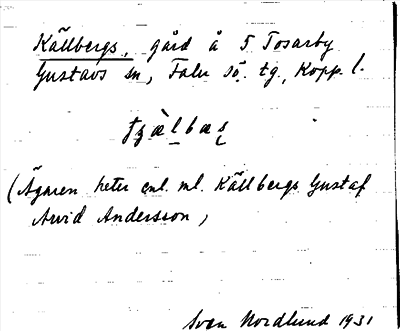 Källbergs, gård å 5 Tosarby
Gustavs sn, Falu sö. tg., Kopp. l.
(Ägaren heter enl. ml. Källbergs Gustaf
Arvid Andersson,
Sven Nordlund 1931